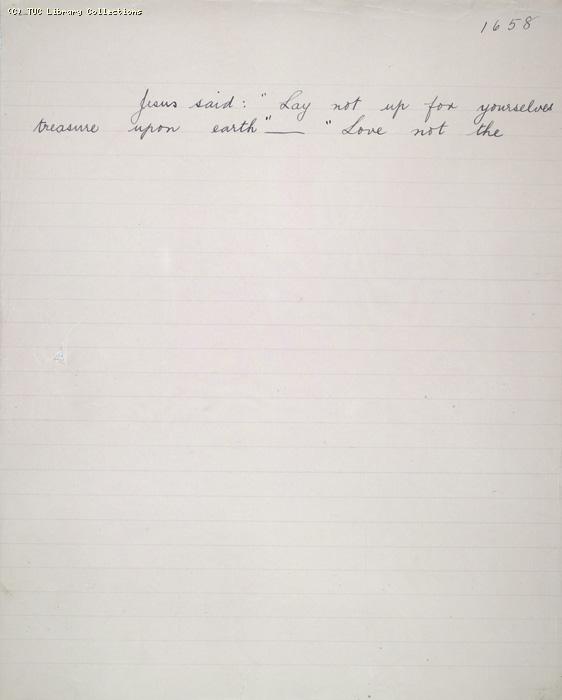 (C) TUC Library Collections
1658
Jesus said: "Lay not up for yourselves
treasure upon earth" — "Love not the